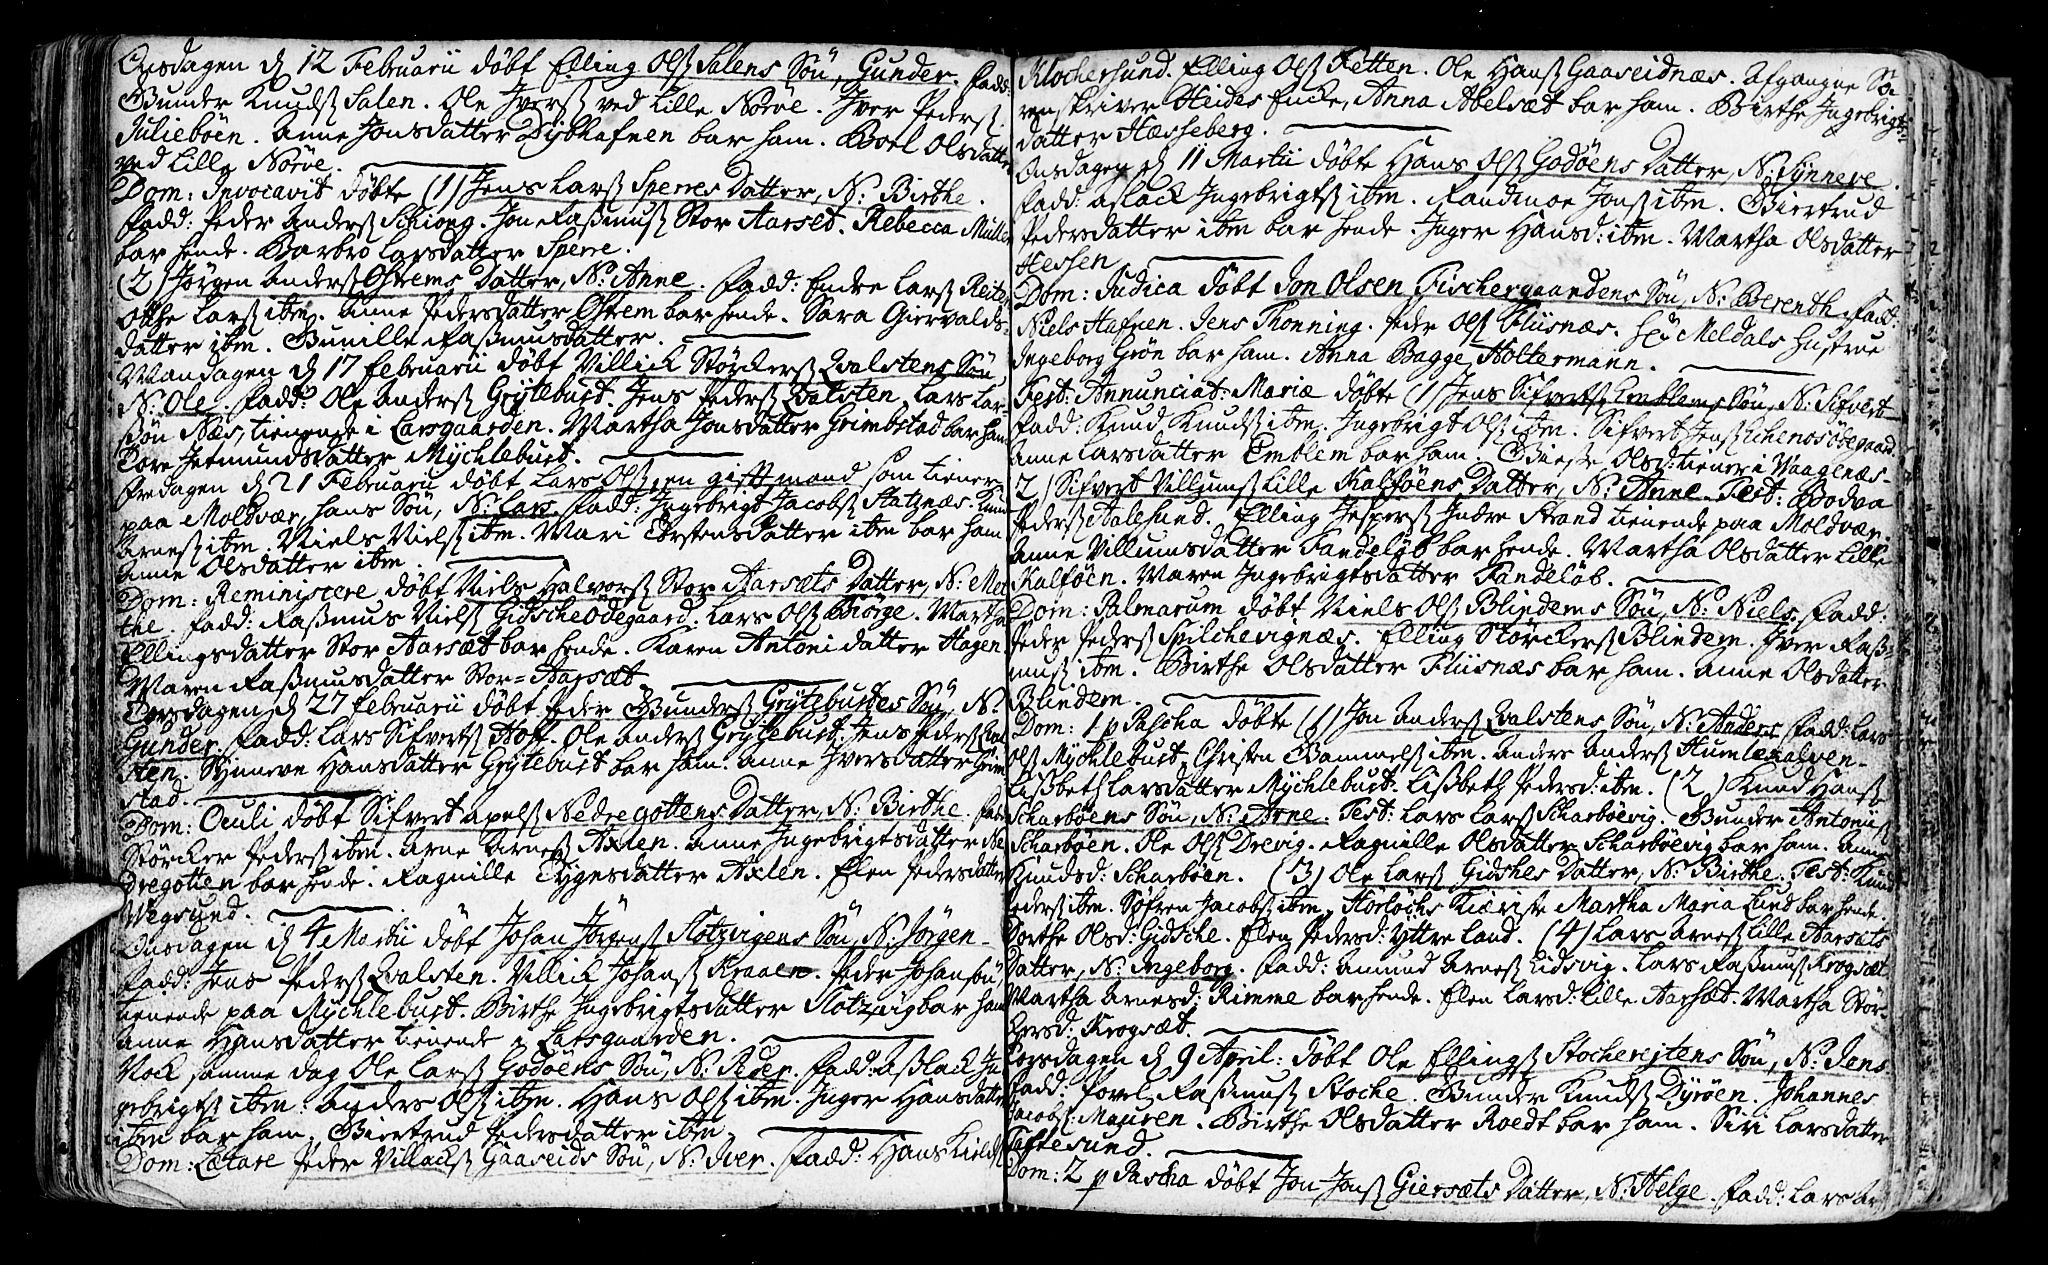 Onsdagen d 12 Februarii døbt Elling Olss Salens Søn, Gunder. Fadd:
Gunder Knuds Salen. Ole Iverss ved Lille Nørve. Iver Pederss
Juliebøen. Anne Jonsdatter Dybhafnen bar ham. Boel Olsdatter
ved Lille Nørve.
Dom: Invocavit døbte (1) Jens Larss Sperres Datter, N: Birthe.
Fadd: Peder Anderss Schiong. Jon Rasmuss Stor Aarset. Rebecca Müller
bar hende. Barbro Larsdatter Sperre.
(2) Jørgen Anderss Østrems Datter, N: Anne. Fadd: Endre Larss Reiten
Otthe Larss ibm. Anne Pedersdatter Østrem bar hende. Sara Giervalds-
datter ibm. Gunille Rasmusdatter.
Mandagen d 17 Februarii døbt Villick Størckerss Qvalstens Søn,
N: Ole. Fadd: Ole Anderss Grytebust. Jens Pederss Qvalsten. Lars Lar-
søn Næs, tienende i Larsgaarden. Martha Jonsdatter Grimbstad bar ham
Tore Jetmundsdatter Mychlebust.
Fredagen d 21 Februarii døbt Lars Olss, en gift mand som tiener
paa Moldvær, hans Søn, N: Lars. Fadd: Ingebrigt Jacobss Flatznæs. Knud
Arness ibm. Niels Nielss ibm. Mari Torstensdatter ibm bar ham
Anne Olsdatter ibm.
Dom: Reminiscere døbt Niels Halvorss Stor Aarsæts Datter, N: Met-
the. Fadd: Rasmus Nielss Gidscheødegaard. Lars Olss Giørge. Martha
Ellingsdatter Stor Aarsæt bar hende. Karen Antonidatter Hagen.
Maren Rasmusdatter Stor=Aarsæt.
Torsdagen d 27 Februarii døbt Peder Gunderss Grytebustes Søn, N:
Gunder. Fadd: Lars Sifvertss Hoff. Ole Anderss Grytebust. Jens Pederss Qval-
sten. Synneve Hansdatter Grytebust bar ham. Anne Iversdatter Grim-
stad.
Dom: Oculi døbt Sifvert Apelss Nedregottens Datter, N: Birthe. Fadd:
Størcker Pederss ibm. Arne Arness Axlen. Anne Ingebrigtsdatter Ne-
dregotten bar hende. Ragnille Trygnsdatter Axlen. Elen Pedersdatter
Vegsund.
Onsdagen d 4 Martii døbt Johan Jørgenss Flotzvigens Søn, N: Jørgen.
Fadd: Jens Pederss Qvalsten. Villick Johanss Kraaen. Peder Johansøn,
tienende paa Mychlebust. Birthe Ingebrigtsdatter Flotzvig bar ham
Anne Hansdatter tienende i Larsgaarden.
Nock samme dag Ole Larss Godøens Søn, N: Peder. Fadd: Aslack In-
gebrigtss ibm. Anders Olss ibm. Hans Olss ibm. Inger Hansdatter
ibm bar ham. Giertrud Pedersdatter ibm.
Dom: Lætare Peder Villackss Gaaseids Søn, N: Iver. Fadd: Hans Kieldss
Klochersund. Elling Olss Fetten. Ole Hanss Gaaseidnæs. Afgangne So-
renskriver Heides Encke, Anna Abelsæt bar ham. Birthe Ingebrigts-
datter Hæsseberg.
Onsdagen d 11 Martii døbte Hans Olss Godøens Datter, N: Synneve.
Fadd: Aslack Ingebrigtss ibm. Randmoe Jonss ibm. Giertrud
Pedersdatter ibm bar hende. Inger Hansd: ibm. Martha Olsdatter
Hessen.
Dom: Judica døbt Jon Olsen Fischergaardens Søn, N: Berenth. Fadd:
Niels Hafnen. Jens Thonning. Peder Olss Fliisnæs. Hr Meldals Hustrue
Ingeborg Grøn bar ham. Anna Bagge Holtermann.
Fest: Annunciat: Mariæ døbte (1) Jens Sifvertss Emblems Søn, N: Sifvert
Fadd: Knud Knudss ibm. Ingebrigt Olss ibm. Sifvert Jenss Echenosødegaard
Anne Larsdatter Emblem bar ham. Olsd: tiener i Vaagenæs.
2) Sifvert Villumss Lille Kalføens Datter, N: Anne. Test: Bodva
Pederss Aalesund. Elling Jesperss Indre Strand tienende paa Moldvær.
Anne Villumsdatter Fandeløb bar hende. Martha Olsdatter Lille
Kalføen. Maren Ingebrigtsdatter Fandeløb.
Dom: Palmarum døbt Niels Olss Blindems Søn, N: Niels. Fadd:
Peder Pederss Spilchevignæs. Elling Størckerss Blindem. Iver Ras-
muss ibm. Birthe Olsdatter Fliisnæs bar ham. Anne Olsdatter
Blindem.
Dom: 1 p Pascha døbte (1) Jon Anderss Qvalstens Søn, N: Anders. Fadd: Lars
Olss Mychlebust. Christen Gammelss ibm. Anders Anderss Humlehalven.
Lisbeth Larsdatter Mychlebust. Lisbeth Pedersd: ibm. (2) Knud Hanss
Scharbøens Søn, N: Arne. Test: Lars Larss Scharbøevig. Gunder Antoniss
Scharbøen. Ole Olss Drevig. Ragnille Olsdatter Scharbøevig bar ham. Anne
Knudsd: Scharbøen. (3) Ole Larss Gidshes Datter, N: Birthe. Test: Knud
Pederss ibm. Søfren Jacobss ibm. Størløchs Kieriste Martha Maria Lund bar hende.
Dorthe Olsd: Gidsche. Elen Pedersd: Yttre Land. (4) Lars Arness Lille Aarsæts
Datter, N: Ingeborg. Fadd: Amund Arness Lidsvig. Lars Rasmuss Krogsæt.
Martha Arnesd: Rimme bar hende. Elen Larsd: Lille Aarsæt. Martha Stør-
kersd: Krogsæt.
Torsdagen d 9 April: døbt Ole Ellingss Stocherejtens Søn, N: Jens.
Fadd: Povel Rasmuss Stoche. Gunder Knudss Dyrøen. Johannes
Jacobss Mauren. Birthe Olsdatter Roedt bar ham. Siri Larsdatter
Taftesund.
Dom: 2 p Pascha døbt Jon Jonss Giersæts Datter, N: Helge. Fadd: Lars Ar-